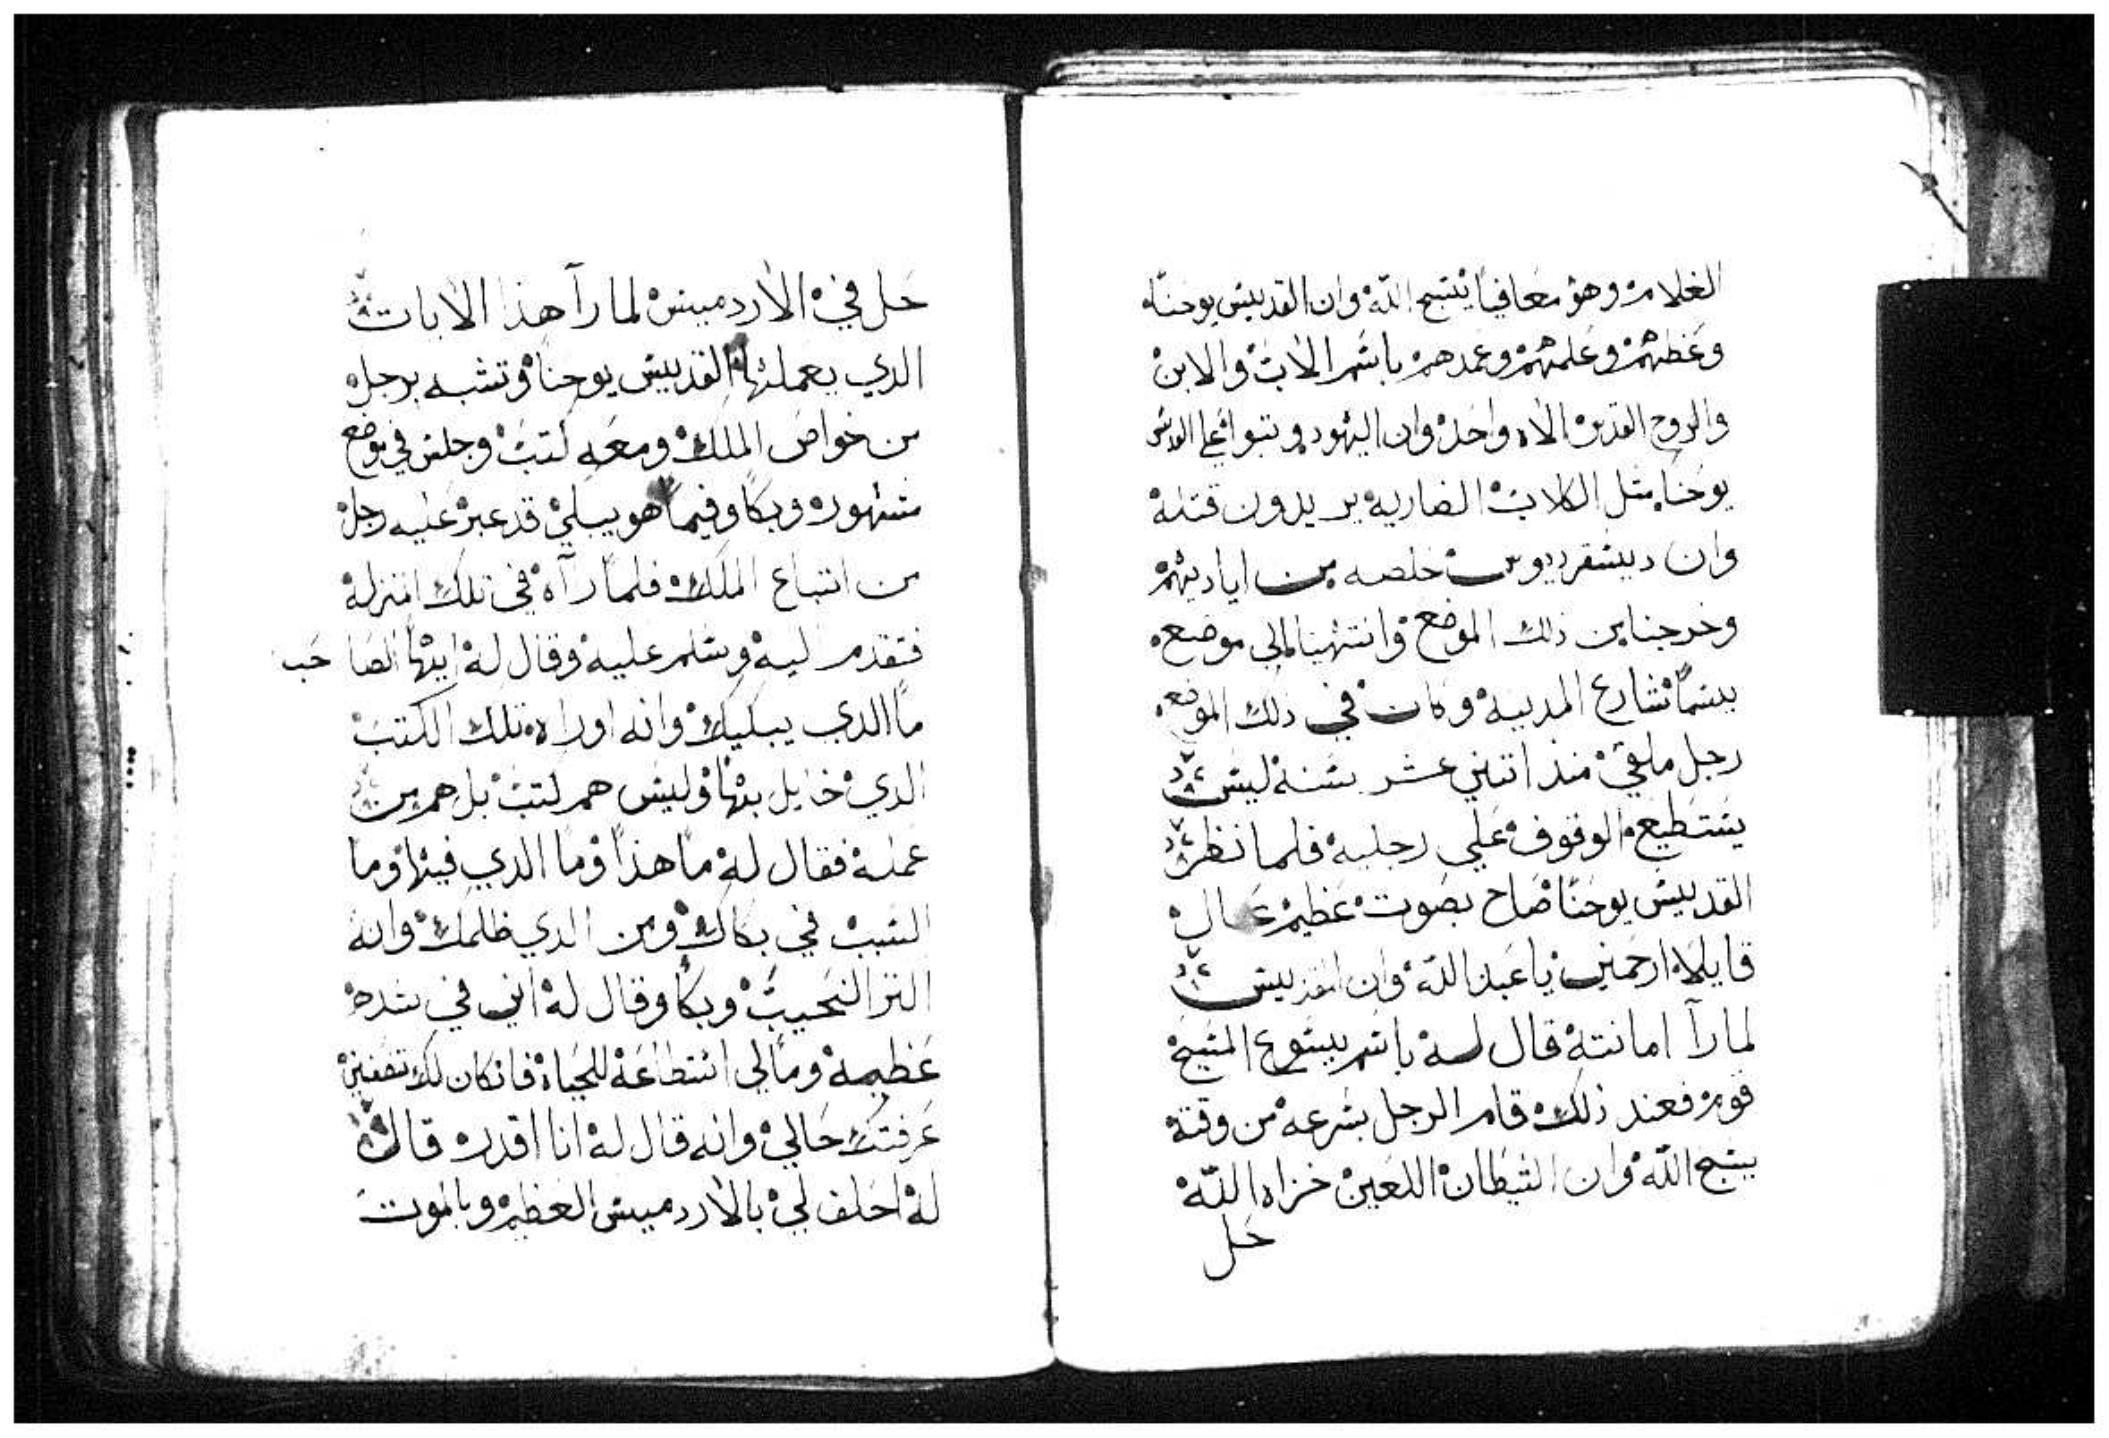 الغلام وهو معافيا يسبح الله وان القديس يوحنا
وعظهم وعلمهم وعمدهم باسم الاب والابن
والروح القدس الاه واحد وان اليهود وتبوا علي القديس
يوحنا مثل الكلاب الضاريه يريدون قتله
وان ديسقريوس خلصه من اياديهم
وخرجنا من ذلك الموضع وانتهينا الي موضع
بيسما شارع المدينه وكان في ذلك الموضع
رجل ملقي منذ اتنين عشر سنه ليس
يستطيع الوقوف علي رجليه فلما نظر
القديس يوحنا صاح بصوت عظيم عال
قايلا ارحمني يا عبد الله وان القديس
لما رآ امانته قال له باسم يسوع المسيح
قوم فعند ذلك قام الرجل بسرعه من وقته
يسبح الله وان الشيطان اللعين خزاه الله
حل
حل في الاردميس لما رآ هذا الايات
الدي يعملها القديس يوحنا وتشبه برجل
من خواص الملك ومعه كتب وجلس في موضع
مشهور وبكا وفيما هو يبكي قد عبر عليه رجل
من اتباع الملك فلما رآه في تلك المنزله
فتقدم اليه وسلم عليه وقال له ايها الصاحب
ما الدي يبكيك وانه اوراه تلك الكتب
الدي خايل بها وليس هم كتب بل هم من
عمله فقال له ما هذا وما الدي فيها وما
السبب في بكاك ومن الدي ظلمك وانه
اكتر النحيب وبكا وقال له اني في شده
عظيمه ومالي استطاعه للحياه فان كان لك تقفني
عرفتك حالي وانه قال له انا اقدر قال
له احلف لي بالاردميس العظيم وبالموت